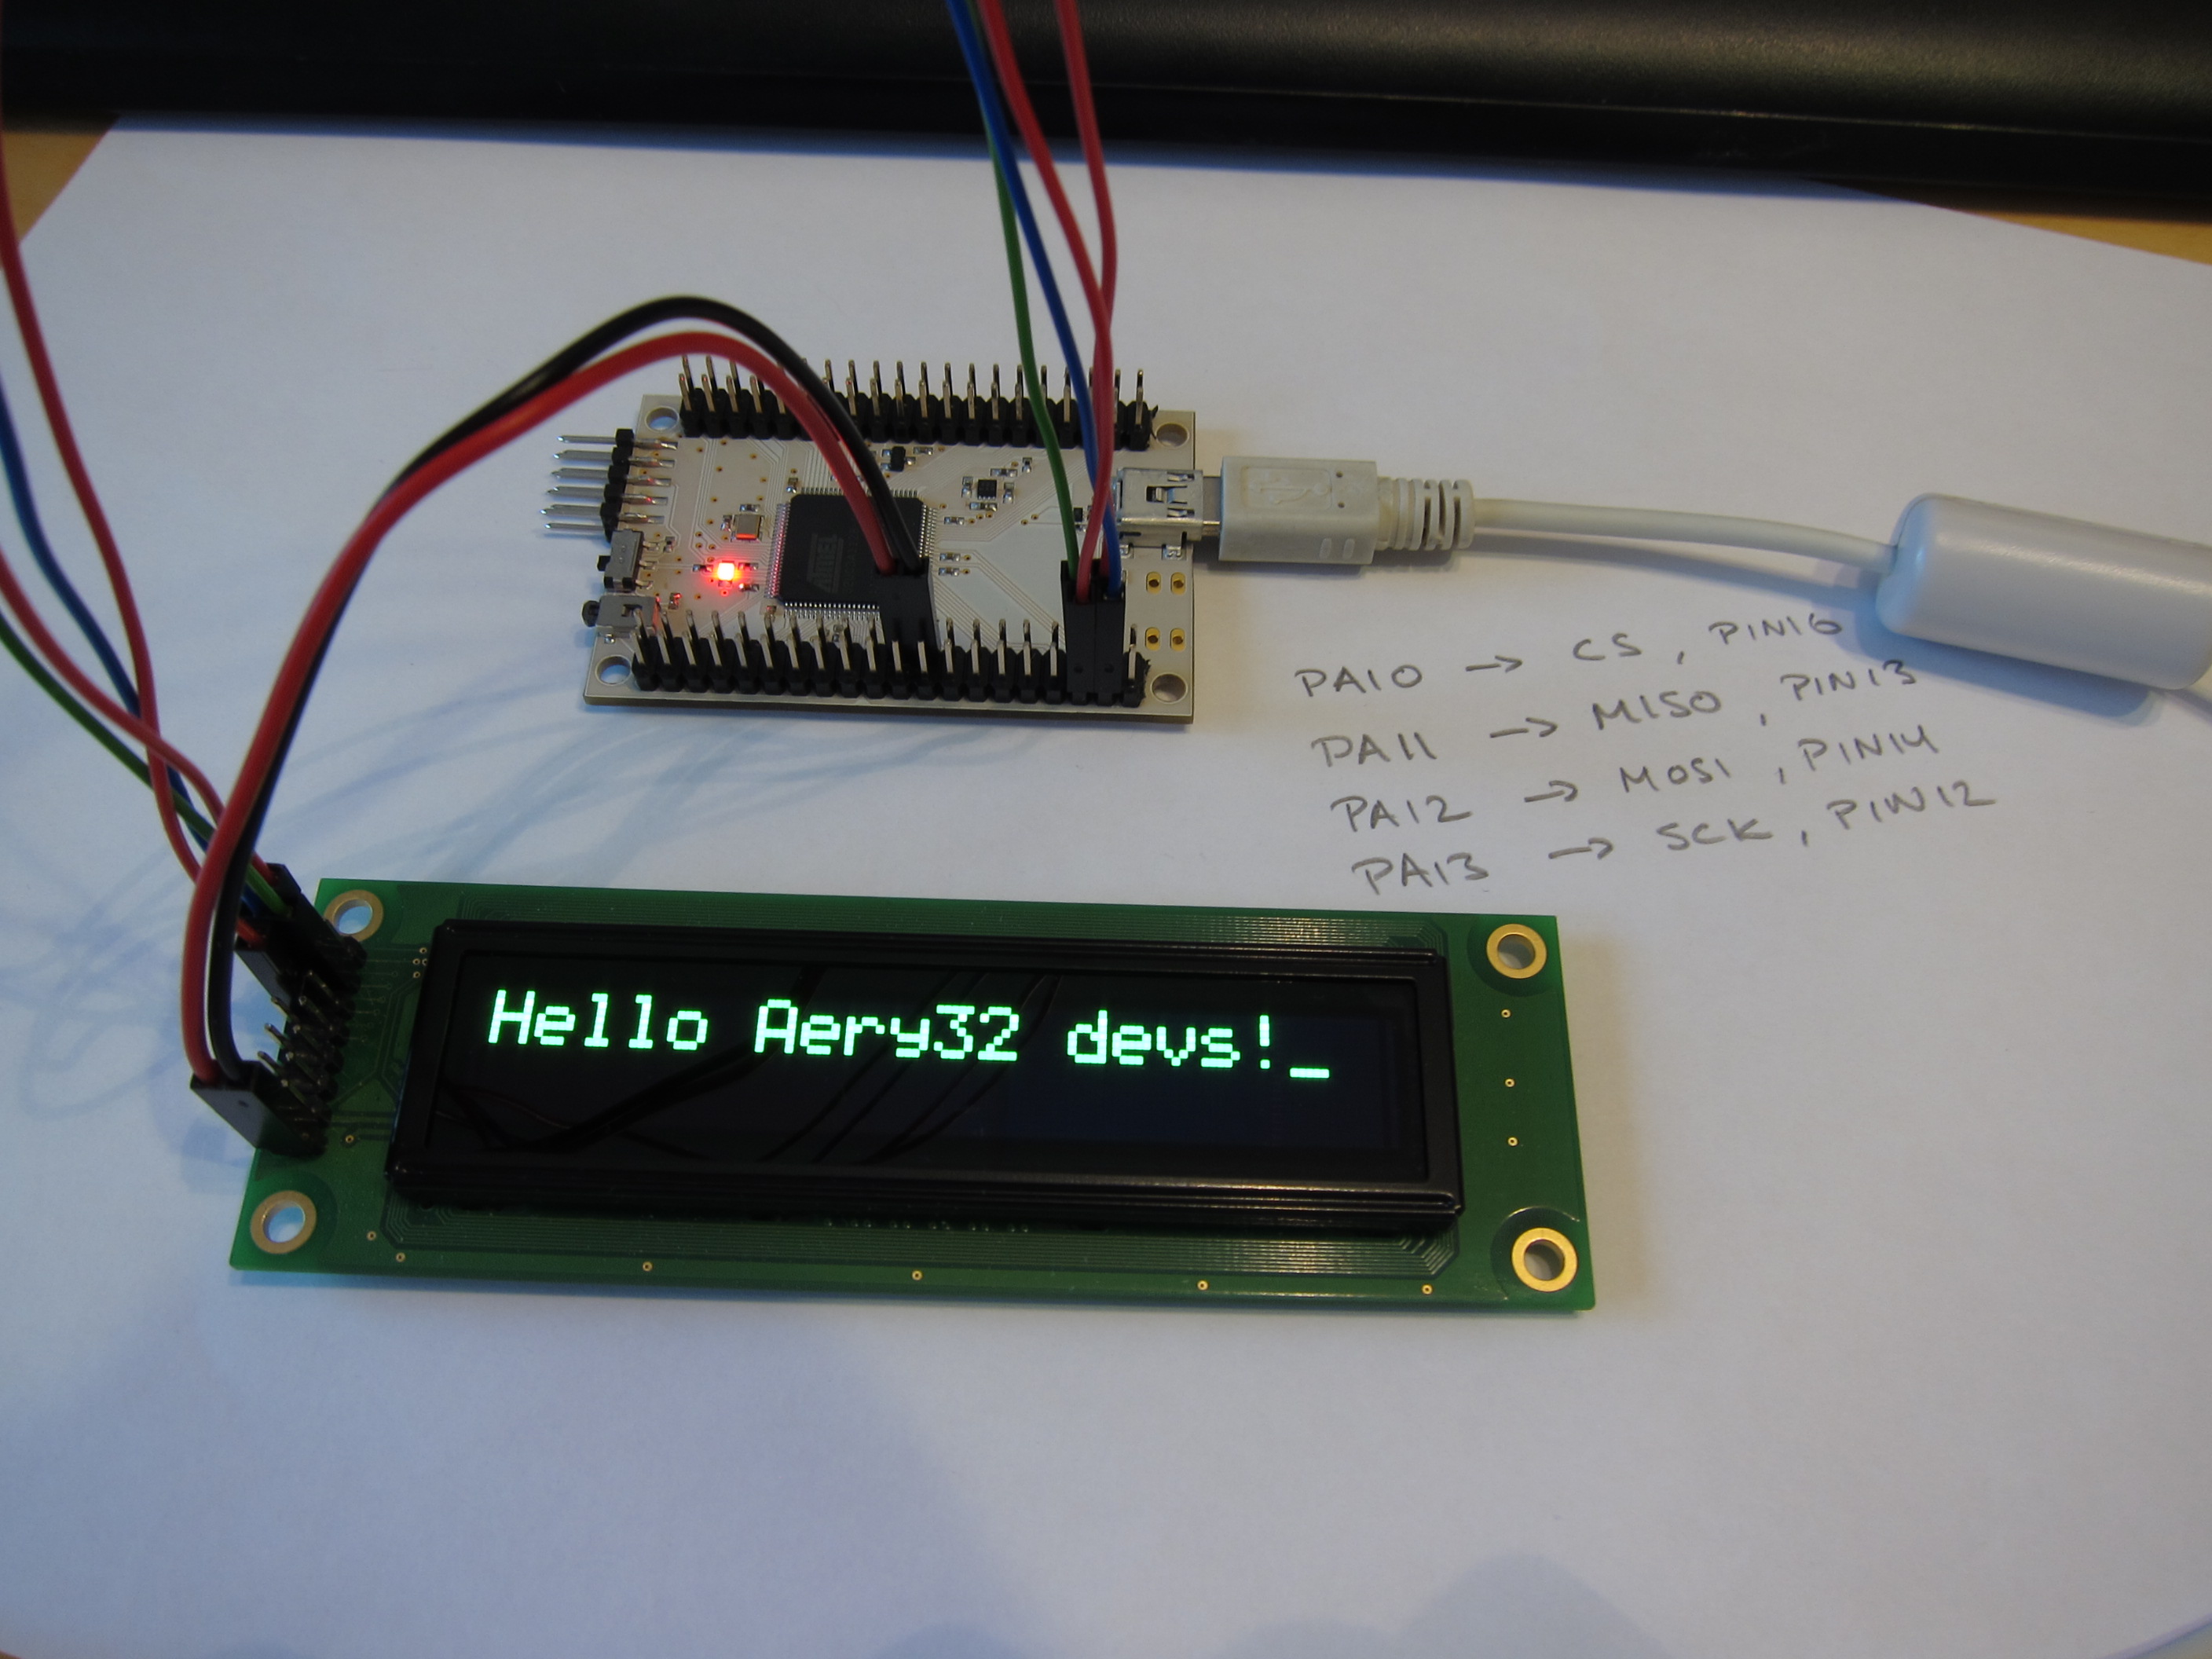 ATMEL
PA10 -> CS, PIN16
PA11 -> MISO, PIN13
PA12 -> MOSI, PIN14
PA13 -> SCK, PIN12
Hello Aery32 devs!_